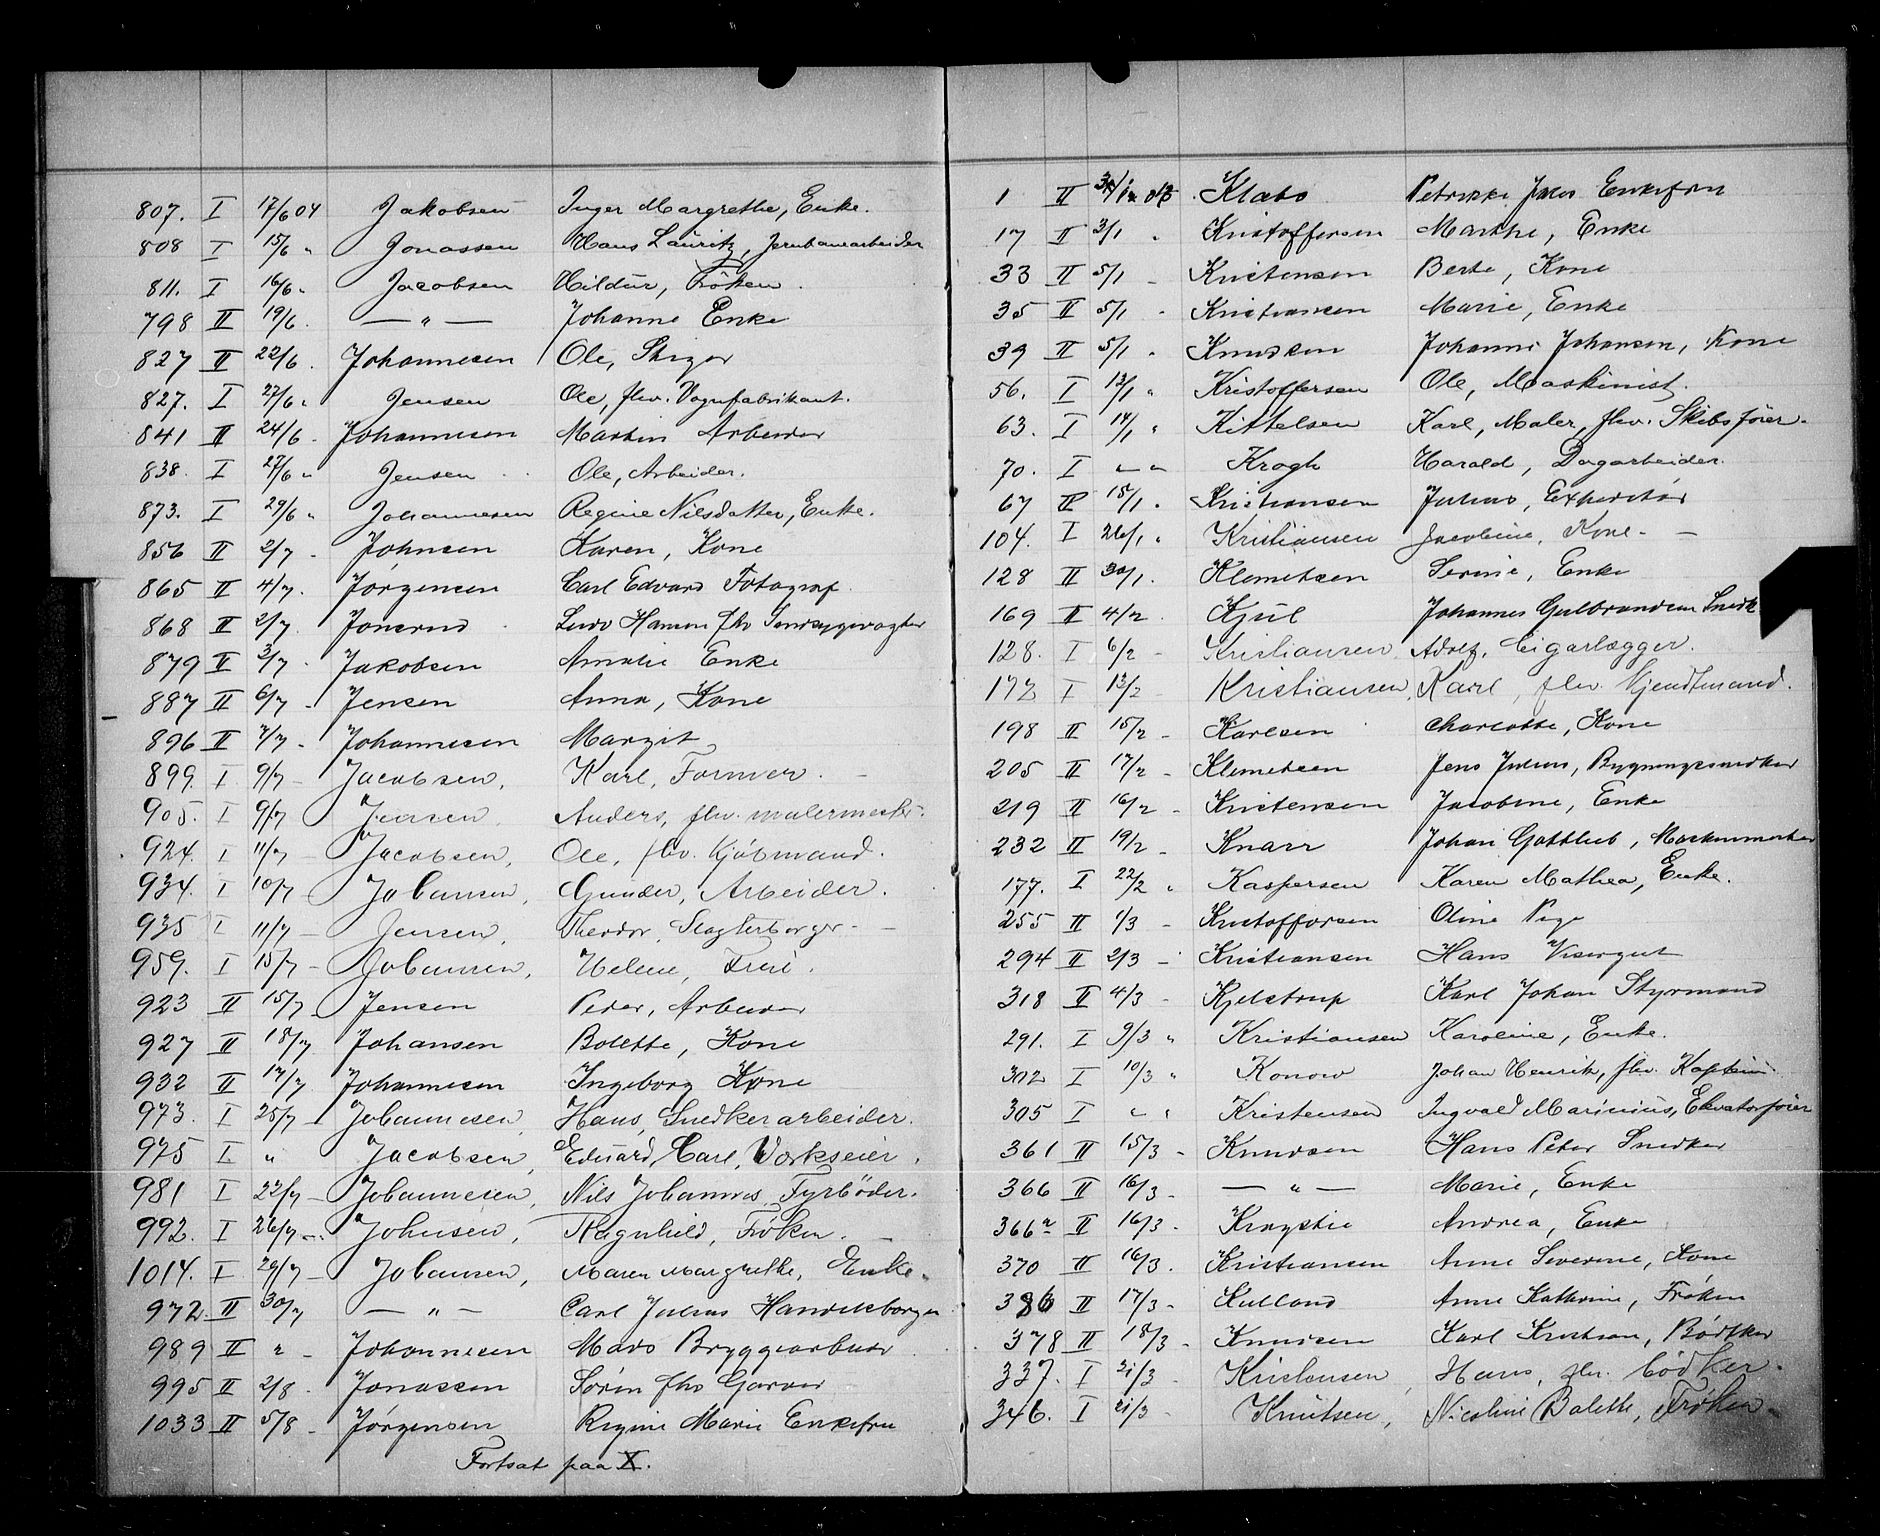 807. I 17/6 04 Jakobsen Inger Margrethe, Enke.
808 I 15/6 " Jonassen Hans Lauritz, Jernbanearbeider
811. I 16/6 " Jacobsen Hildur, Frøken.
798 II 19/6. — " — Johanne Enke
827 II 22/6. Johannesen Ole,
827. I 27/6 " Jensen Ole, flv. Vognfabrikant.
841 II 24/6 - Johannesen Martin Arbeider
838. I 27/6 " Jensen Ole, Arbeider.
873. I 29/6 " Johannesen Regine Nilsdatter, Enke.
856 II 2/7 - Johnsen Karen, Kone
865 II 4/7. Jørgensen Carl Edvard Fotograf.
868 II 2/7. Jonsrud Ludv Hansen fhv Sindssygevogter
879 II 3/7 - Jakobsen Amalie Enke
887 II 6/7 - Jensen Anna, Kone
896 II 7/7 - Johannesen Margit
899. I 9/7 - Jacobsen, Karl, Former. —
905. I 9/7 Jensen, Anders, flv. malermester.
924. I 11/7 Jacobsen, Ole, flv. Kjøbmand.
934. I 10/7 Johansen, Gunder, Arbeider.
935 I 11/7 - Jensen, Theodor, Slagterborger - —
959. I 15/7 - Johansen, Helene, Frue.
923 II 15/7 - Jensen Peder, Arbeider
927 II 18/7 Johansen Bolette, Kone
932 II 17/7. Johannesen Ingeborg Kone
973. I 25/7 - Johannesen, Hans, Snedkerarbeider.
975 I " Jacobsen, Eduard Carl, Værkseier.
981 I 22/7 - Johannesen, Nils Johannes Fyrbøder.
992. I 26/7 - Johnsen, Ragnhild, Frøken. —
1014. I 29/7 - Johansen, Maren Margrethe, Enke.
972. II 30/7 — " — Carl Julius Handelsborger
989 II " - Johannesen Mads Bryggearbeider
995 II 2/8 - Jonassen Søren fhv Garver
1033 II 5/8 - Jørgensen Regine Marie Enkefru
Fortsat paa X.
1 II Klabo Enkefru
17 II 3/1 " Kristoffersen Marthe, Enke
33 II 5/1 - Kristensen Berte, Kone
35 II 5/1 - Kristiansen Marie, Enke
39 II 5/1 " Knudsen Johanne Johansen, Kone
56. I 13/1 " Kristoffersen Ole, Maskinist.
63. I 14/1 " Kittelsen Karl, Maler, flv. Skibsfører.
70. I " " Krogh Harald, Dagarbeider.
67 II 15/1. Kristiansen Julius, Expeditør
104. I 26/1 " Kristiansen Jacobine, Kone. —
128 II 30/1. Klemetsen Serine, Enke
169 II 4/2. Kjul Johannes Gulbrandsen Snedk
128. I 6/2 - Kristiansen, Adolf, Cigarlægger.
172 I 13/2 - Kristiansen, Karl, flv. Kjendtmand.
198 II 15/2 - Karlsen Charlotte, Kone
205 II 17/2 - Klemetsen Jens Julius, Bygningssnedker
219 II 16/2 - Kristensen Jacobine, Enke
232 II 19/2 - Knarr Johan Gottlieb,
177. I 22/2 " Kaspersen Karen Mathea, Enke.
255 II 1/3 - Kristoffersen Oline Pige
294 II 2/3 - Kristiansen Hans Visergut
318 II 4/3 - Kjelstrup Karl Johan Styrmand
291. I 9/3 " Kristiansen Karoline, Enke.
302 I 10/3 " Konow Johan Henrik, flv. Kaptein.
305 I " " Kristensen Ingvald Marinius, Elevatorfører
361 II 15/3 - Knudsen Hans Peter Snedker
366 II 16/3 - — " — Marie, Enke
366a II 16/3 - Krogstie Andrea, Enke
370 II 16/3. Kristiansen Anne Severine, Kone
386 II 17/3 - Kulland Anne Kathrine, Frøken
378 II 18/3 - Knudsen Karl Kristian, Bødker
337. I 21/3 - Kristensen, Hans, flv. bødker.
346. I 21/3 - Knutsen, Nicoline Bolette, Frøken.